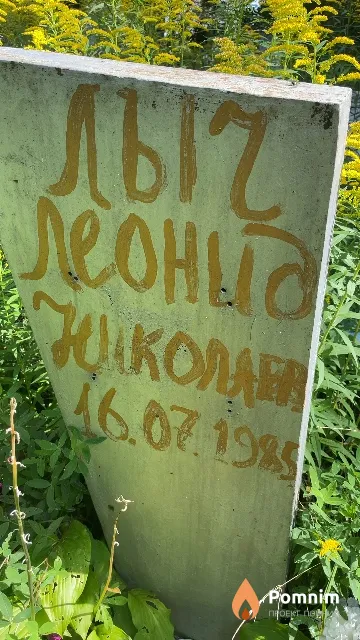 Лыч
Леонид
Николаев
16.07.1985
Pomnim
ПРОЕКТ ПАМЯТИ